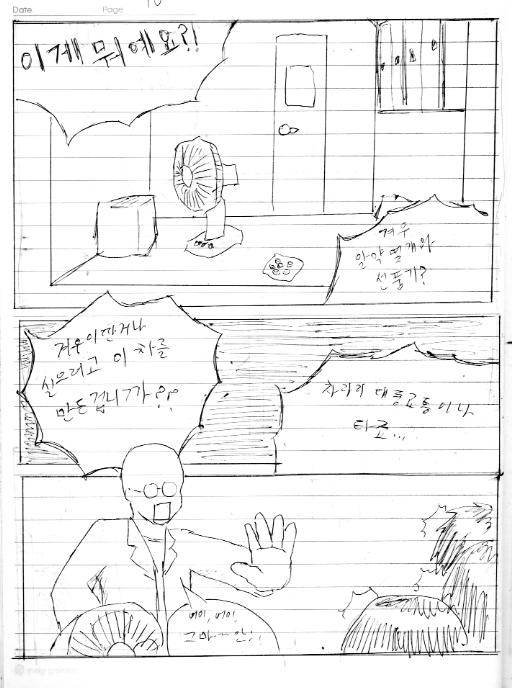 Date.
Page
10
이게 뭐예요?!
겨우
알약 몇개와
선풍기?
겨우 이딴거나
실으려고 이 차를
만든겁니까??
차라리 대중교통이나
타죠...
에이, 에이!
그마~안!!